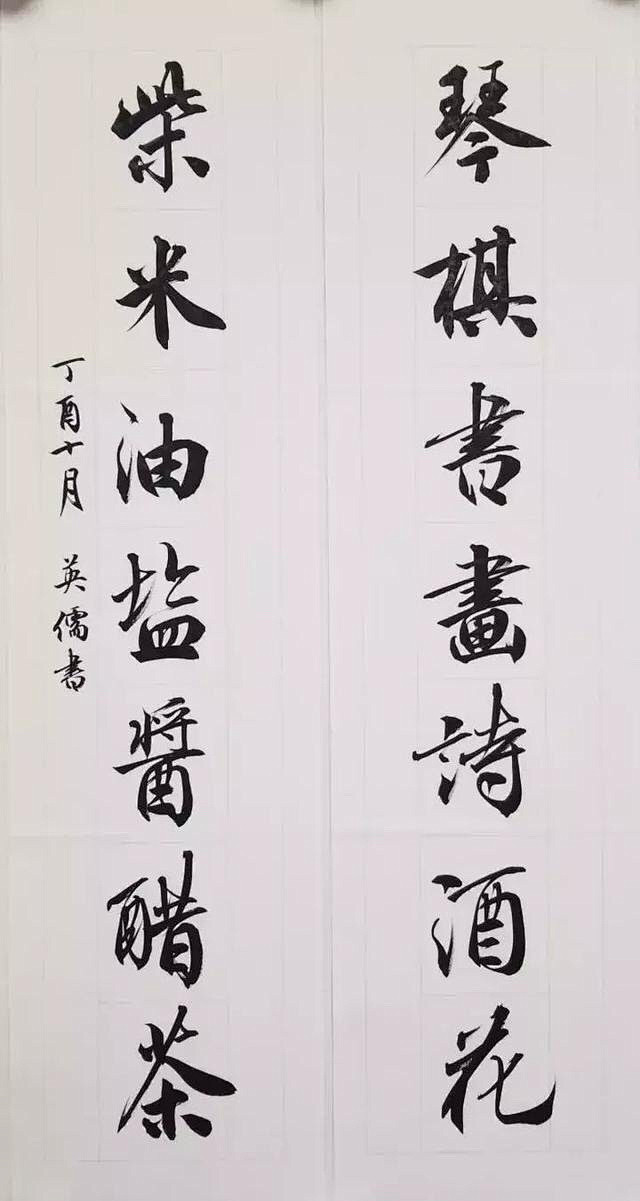 琴棋書畫詩酒花
柴米油塩醬醋茶
丁酉十月 英儒書